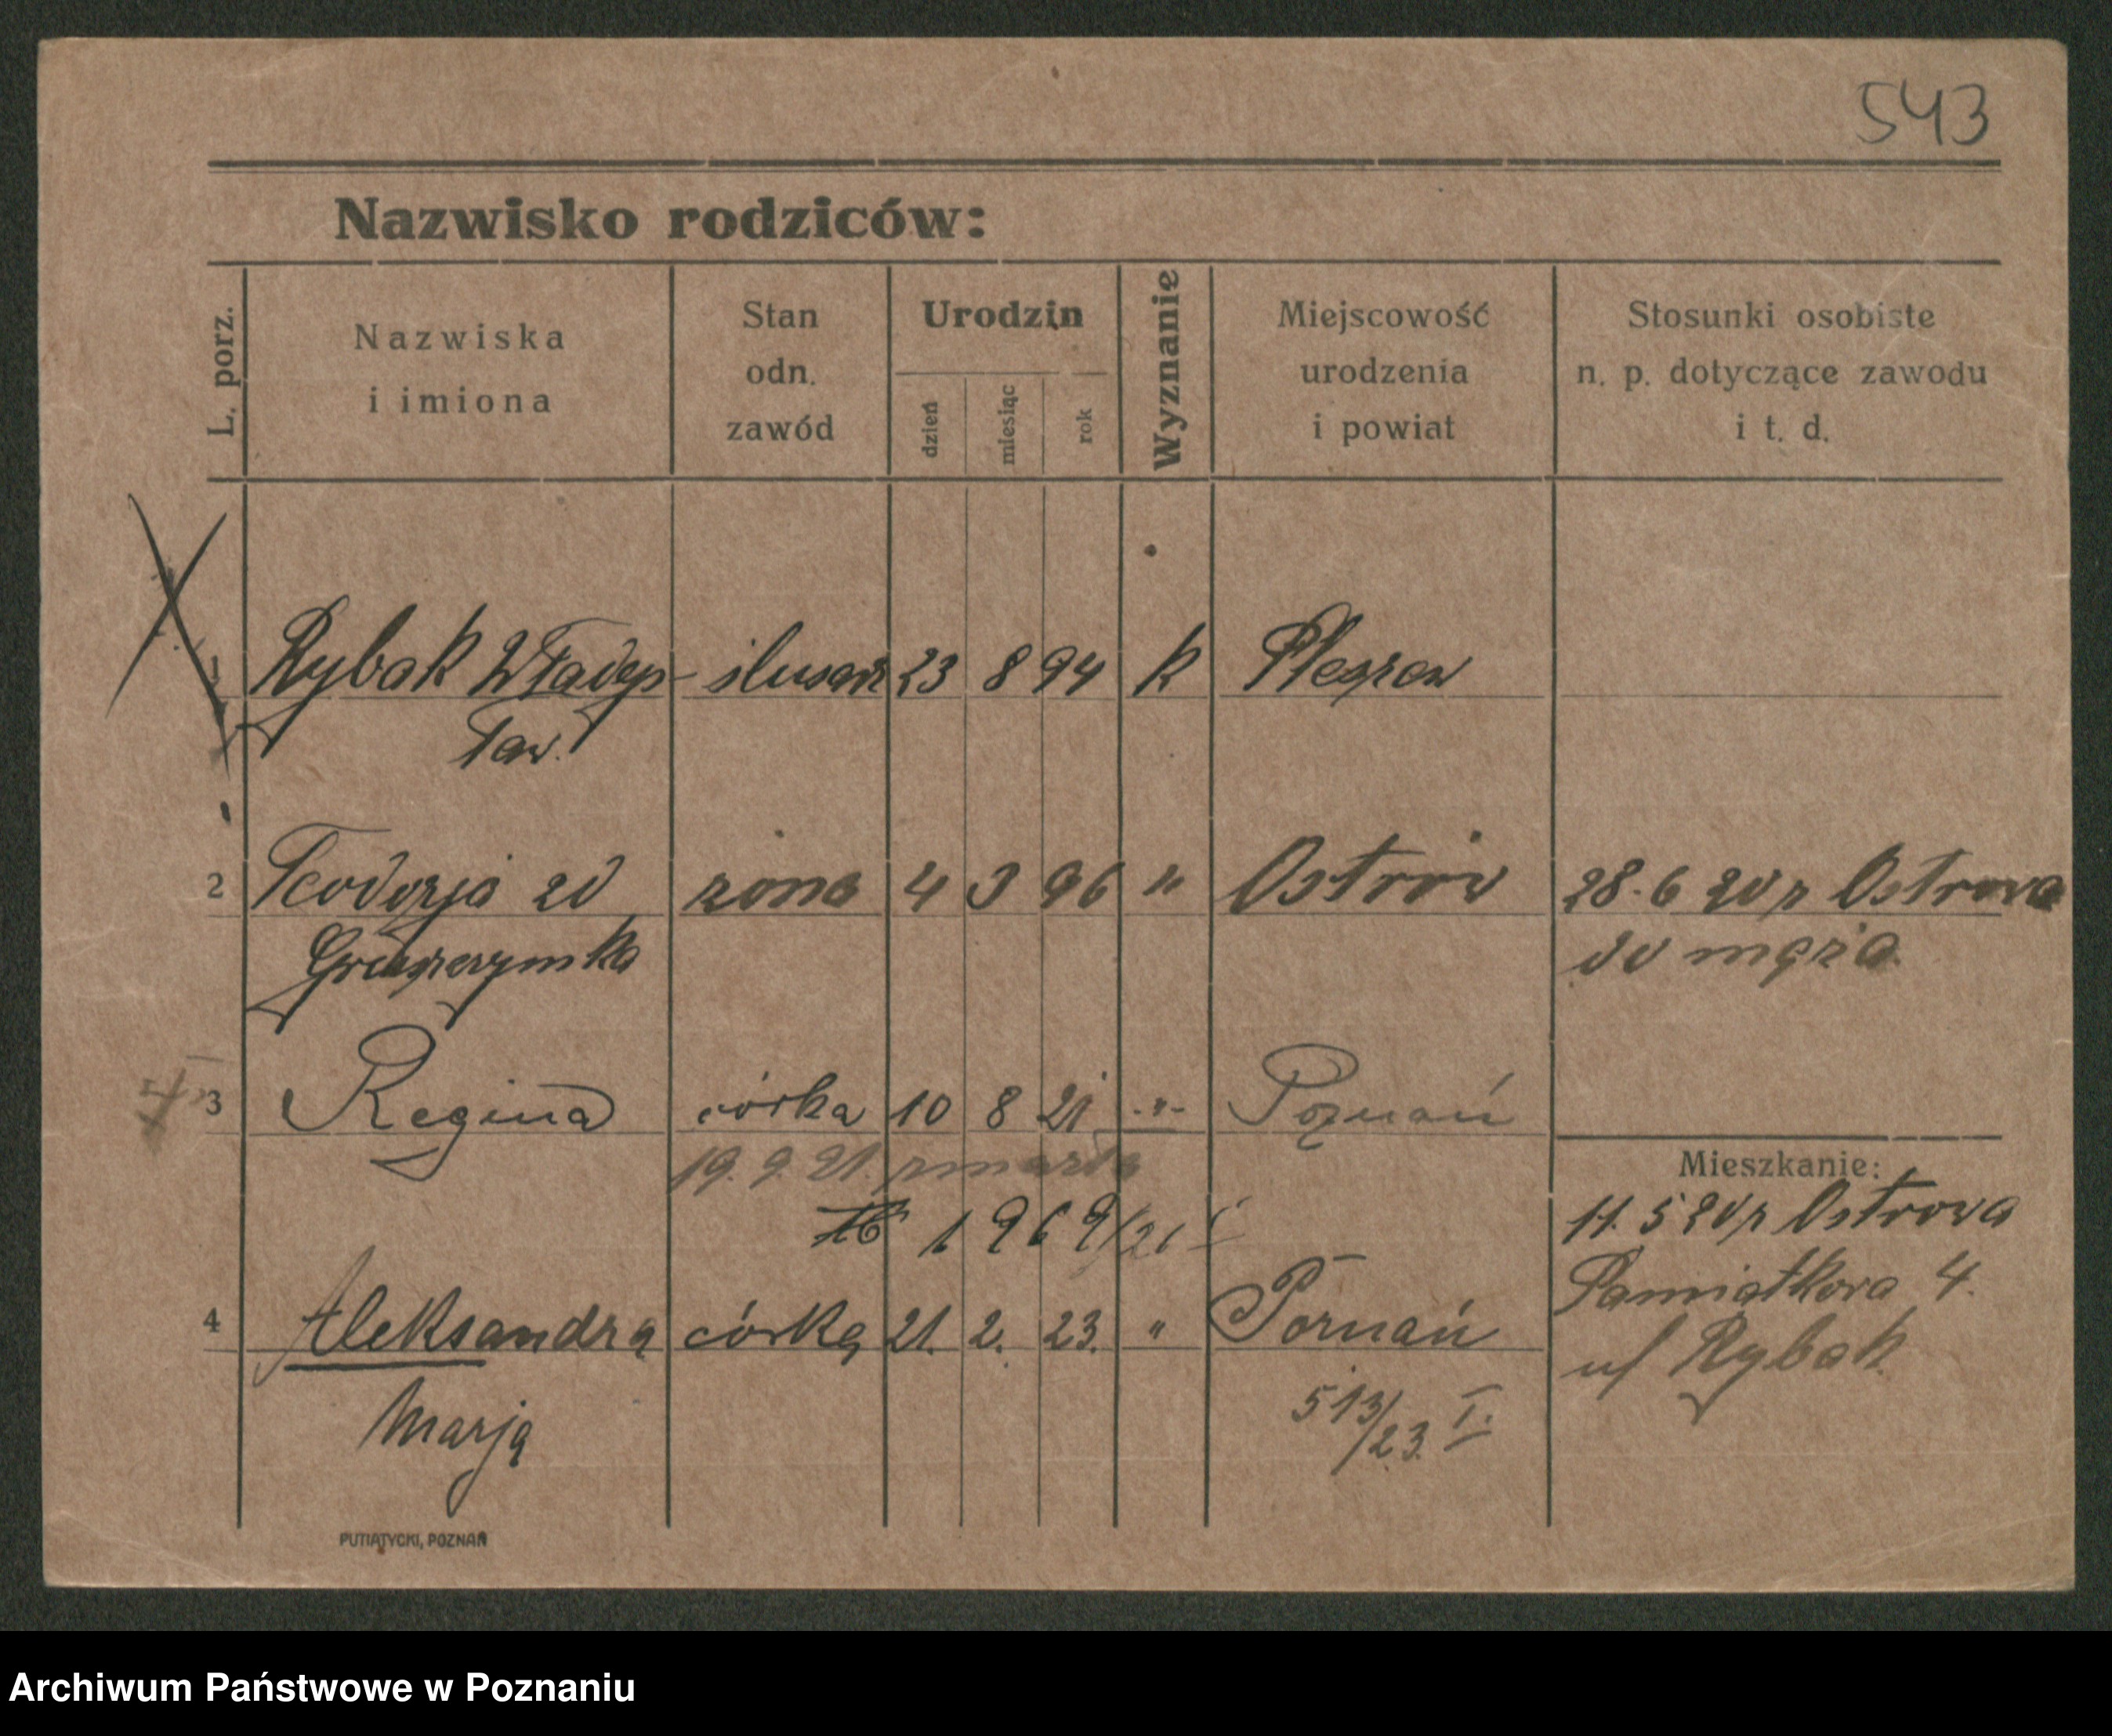 543
Nazwisko rodziców:
L. porz.
Nazwiska
i imiona
Stan
odn.
zawód
Urodzin
dzień
miesiąc
rok
Wyznanie
Miejscowość
urodzenia
i powiat
Stosunki osobiste
n. p. dotyczące zawodu
i t. d.
1 Rybak Władys- ślusarz 23 8 94 k Pleszew
ław.
2 Teodozja zd żona 4 3 96 " Ostrów 28.6 20 z Ostrowa
do męża.
3 Regina córka 10 8 21 -"- Poznań
19. 9. 21. zmarła
Mieszkanie:
1969/21 I
11. 5 20 z Ostrowa
Pamiątkowa 4.
4 Aleksandra córka 21. 2. 23. " Poznań
u/ Rybak
Marja
513/23. I.
PUTIATYCKI, POZNAŃ
Archiwum Państwowe w Poznaniu